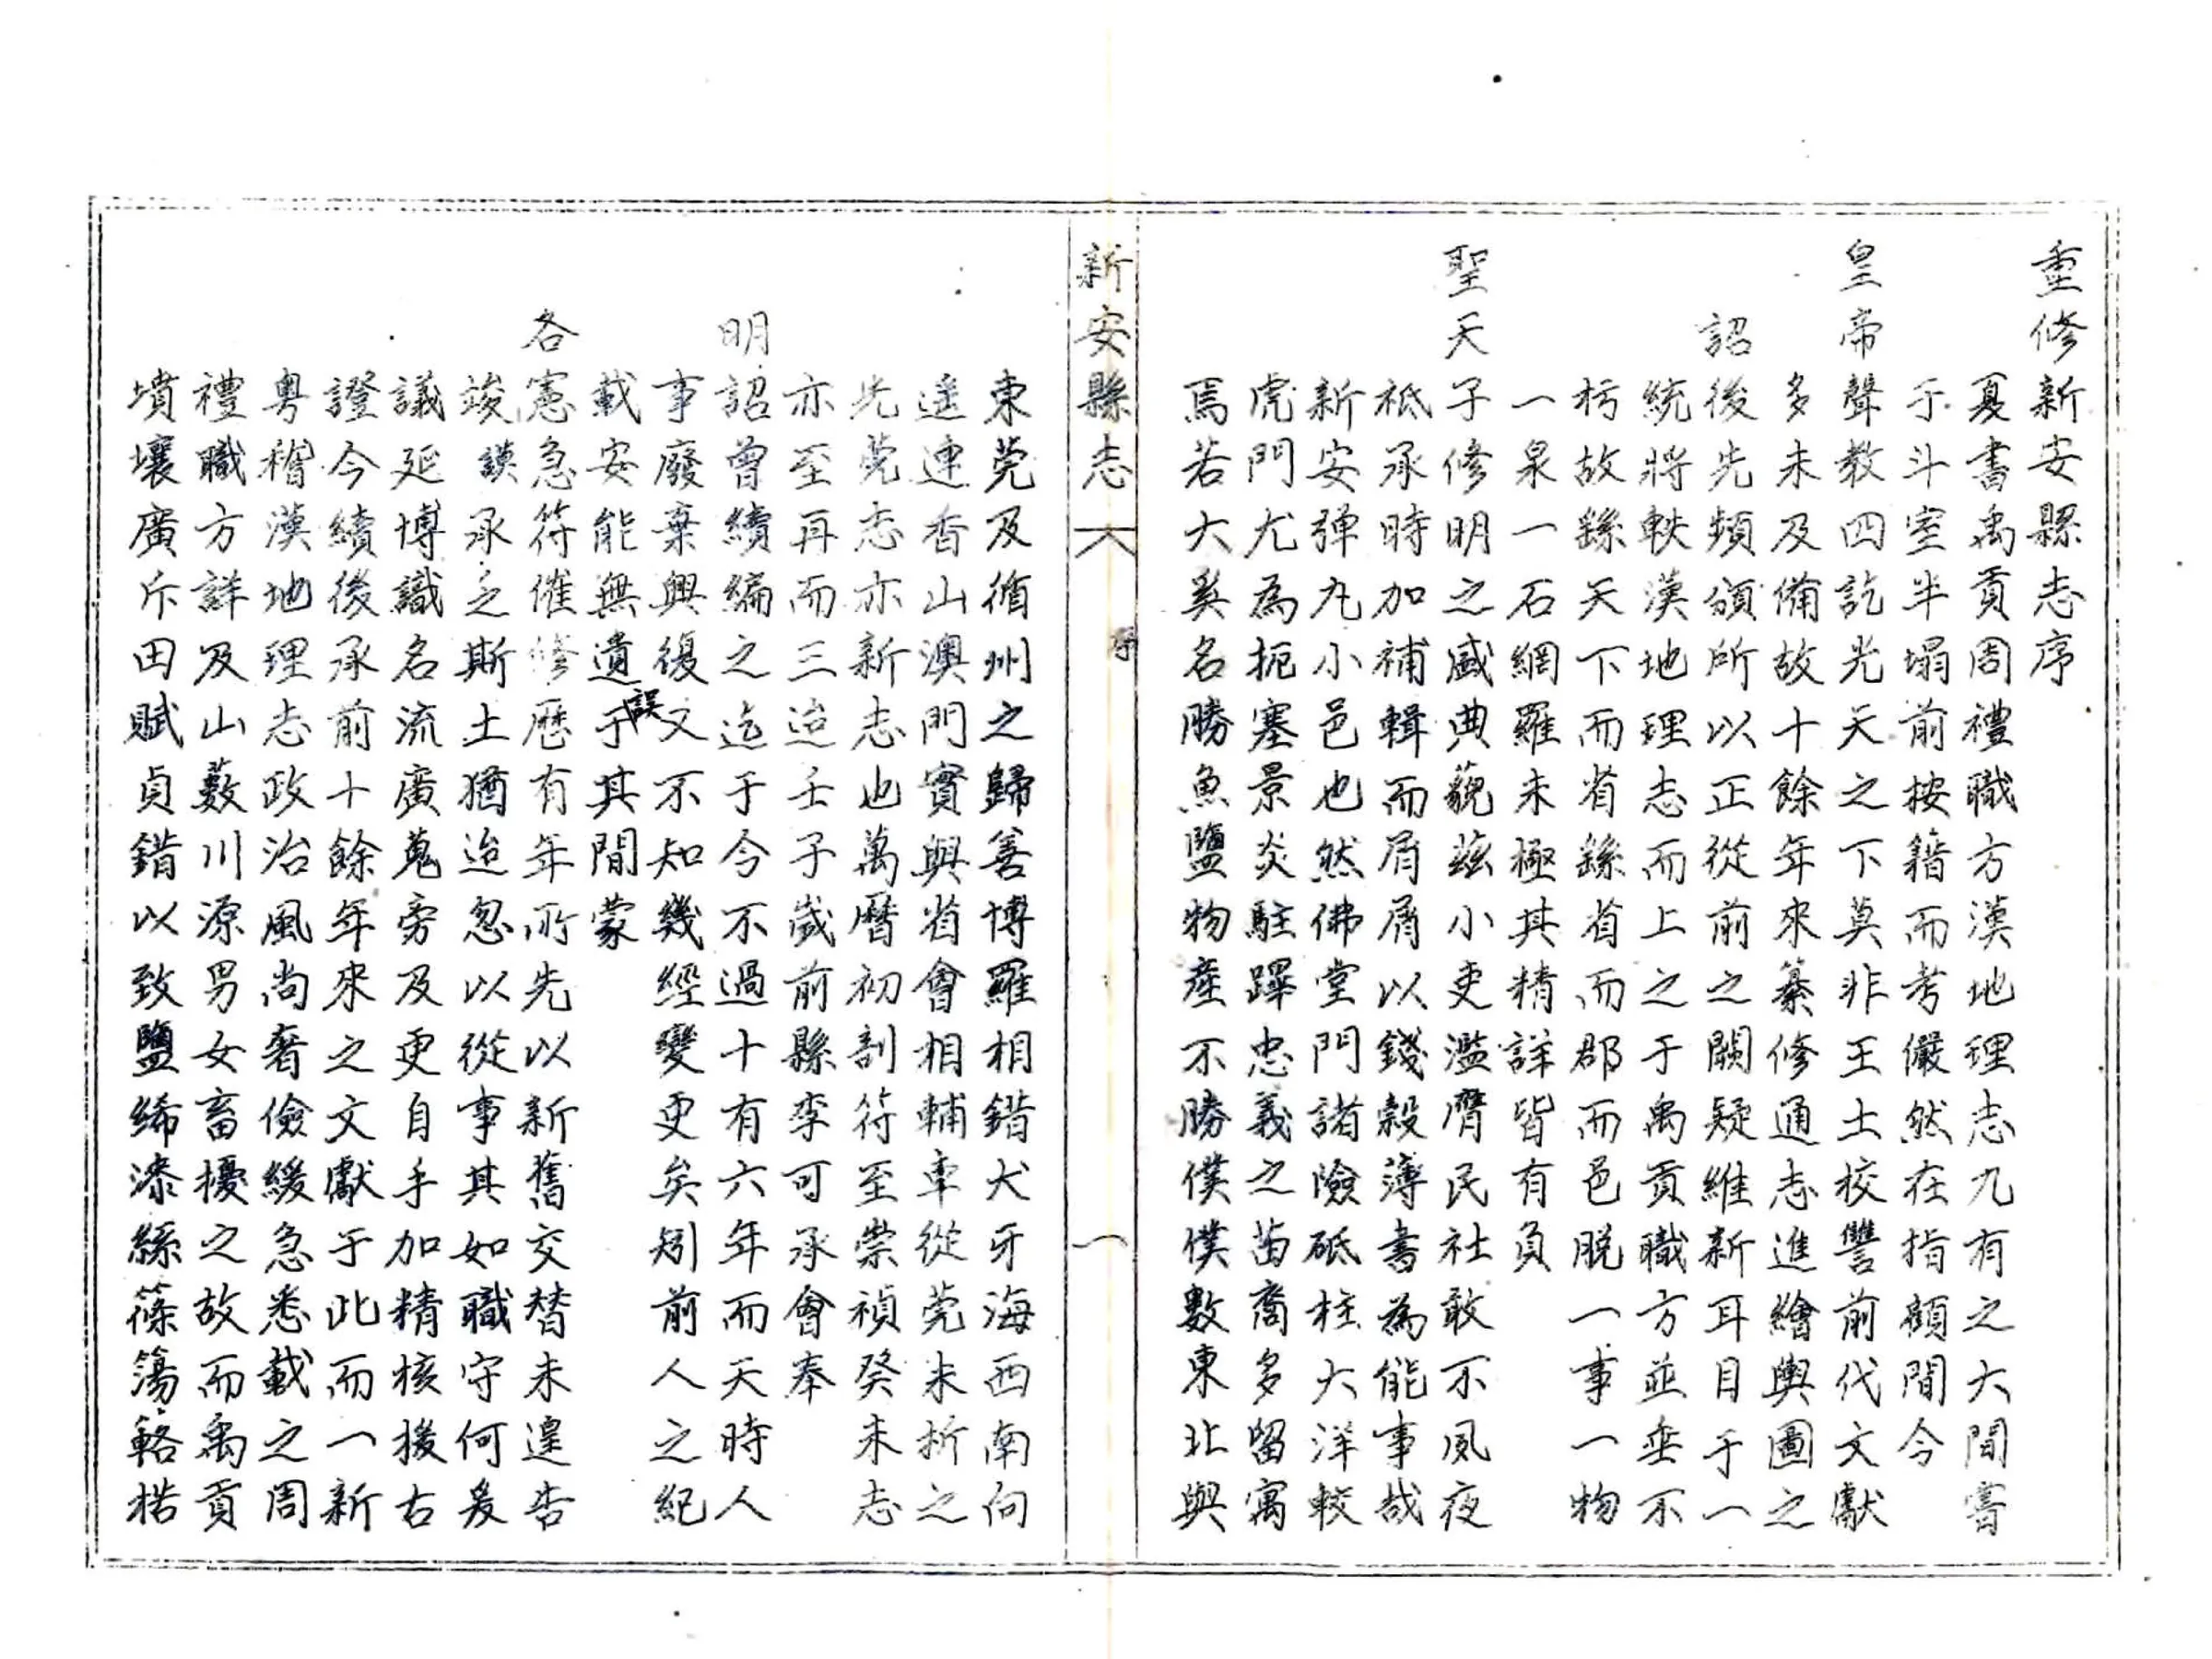 重修新安縣志序
夏書禹貢周禮職方漢地理志九有之大間嘗
于斗室半塌前按籍而考儼然在指顧間今
皇帝聲教四訖光天之下莫非王土校讐前代文獻
多未及備故十餘年來纂修通志進繪輿圖之
詔後先頻頒所以正從前之闕疑維新耳目于一
統將軼漢地理志而上之于禹貢職方並垂不
朽故繇天下而省繇省而郡而邑脫一事一物
一泉一石網羅未極其精詳皆有負
聖天子修明之盛典藐茲小吏濫膺民社敢不夙夜
祗承時加補輯而屑屑以錢穀薄書為能事哉
新安弹丸小邑也然佛堂門諸險砥柱大洋較
虎門尤為扼塞景炎駐蹕忠義之苗裔多留寓
焉若大奚名勝魚鹽物產不勝僕僕數東北與
新安縣志 序 一
東莞及循州之歸善博羅相錯犬牙海西南向
遥連香山澳門實與省會相輔車從莞未析之
先莞志亦新志也萬曆初剖符至崇禎癸未志
亦至再而三迨壬子歲前縣李可承會奉
明詔曾續編之迄于今不過十有六年而天時人
事廢棄興復又不知幾經變更矣矧前人之紀
載安能無遺誤于其間蒙
各憲急符催修歷有年所先以新舊交替未遑告
竣謨承之斯土猶迨忽以從事其如職守何爰
議延博識名流廣蒐旁及更自手加精核援古
證今續後承前十餘年來之文獻于此而一新
粵稽漢地理志政治風尚奢儉緩急悉載之周
禮職方詳及山藪川源男女畜擾之故而禹貢
墳壤廣斥田賦貞錯以致鹽絺漆絲篠簜簵楛